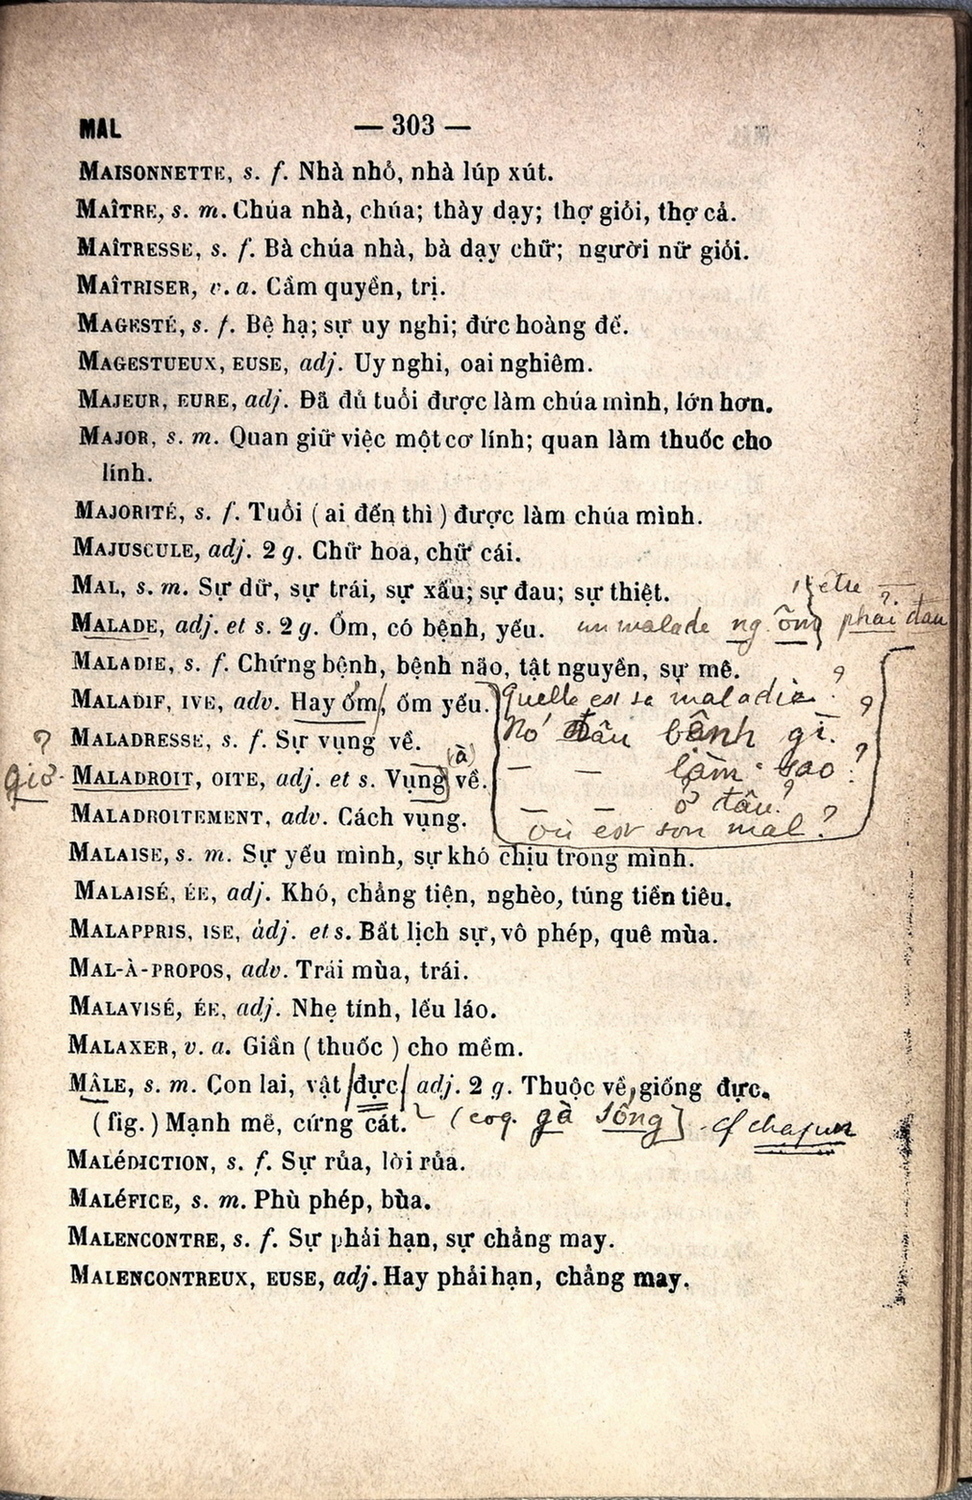 MAL — 303 —
MAISONNETTE, s. f. Nhà nhỏ, nhà lúp xút.
MAÎTRE, s. m. Chúa nhà, chúa; thày dạy; thợ giỏi, thợ cả.
MAÎTRESSE, s. f. Bà chúa nhà, bà dạy chữ; người nữ giỏi.
MAÎTRISER, v. a. Cầm quyền, trị.
MAGESTÉ, s. f. Bệ hạ; sự uy nghi; đức hoàng đế.
MAGESTUEUX, EUSE, adj. Uy nghi, oai nghiêm.
MAJEUR, EURE, adj. Đã đủ tuổi được làm chúa mình, lớn hơn.
MAJOR, s. m. Quan giữ việc một cơ lính; quan làm thuốc cho
lính.
MAJORITÉ, s. f. Tuổi ( ai đến thì ) được làm chúa mình.
MAJUSCULE, adj. 2 g. Chữ hoa, chữ cái.
MAL, s. m. Sự dữ, sự trái, sự xấu; sự đau; sự thiệt. être —
MALADE, adj. et s. 2 g. Ốm, có bệnh, yếu. un malade ng ốm phải đau
MALADIE, s. f. Chứng bệnh, bệnh não, tật nguyền, sự mê.
MALADIF, IVE, adv. Hay ốm, ốm yếu. Quelle est sa maladie ?
? MALADRESSE, s. f. Sự vụng về. Nó đau bệnh gì ?
giở MALADROIT, OITE, adj. et s. Vụng (à) về. — — làm sao ?
— — ở đâu ?
MALADROITEMENT, adv. Cách vụng. où est son mal ?
MALAISE, s. m. Sự yếu mình, sự khó chịu trong mình.
MALAISÉ, ÉE, adj. Khó, chẳng tiện, nghèo, túng tiền tiêu.
MALAPPRIS, ISE, adj. et s. Bất lịch sự, vô phép, quê mùa.
MAL-À-PROPOS, adv. Trái mùa, trái.
MALAVISÉ, ÉE, adj. Nhẹ tính, lếu láo.
MALAXER, v. a. Giần ( thuốc ) cho mềm.
MÂLE, s. m. Con lai, vật đực, adj. 2 g. Thuộc về giống đực.
( fig. ) Mạnh mẽ, cứng cát. (coq. gà sống) cf chapon
MALÉDICTION, s. f. Sự rủa, lời rủa.
MALÉFICE, s. m. Phù phép, bùa.
MALENCONTRE, s. f. Sự phải hạn, sự chẳng may.
MALENCONTREUX, EUSE, adj. Hay phải hạn, chẳng may.